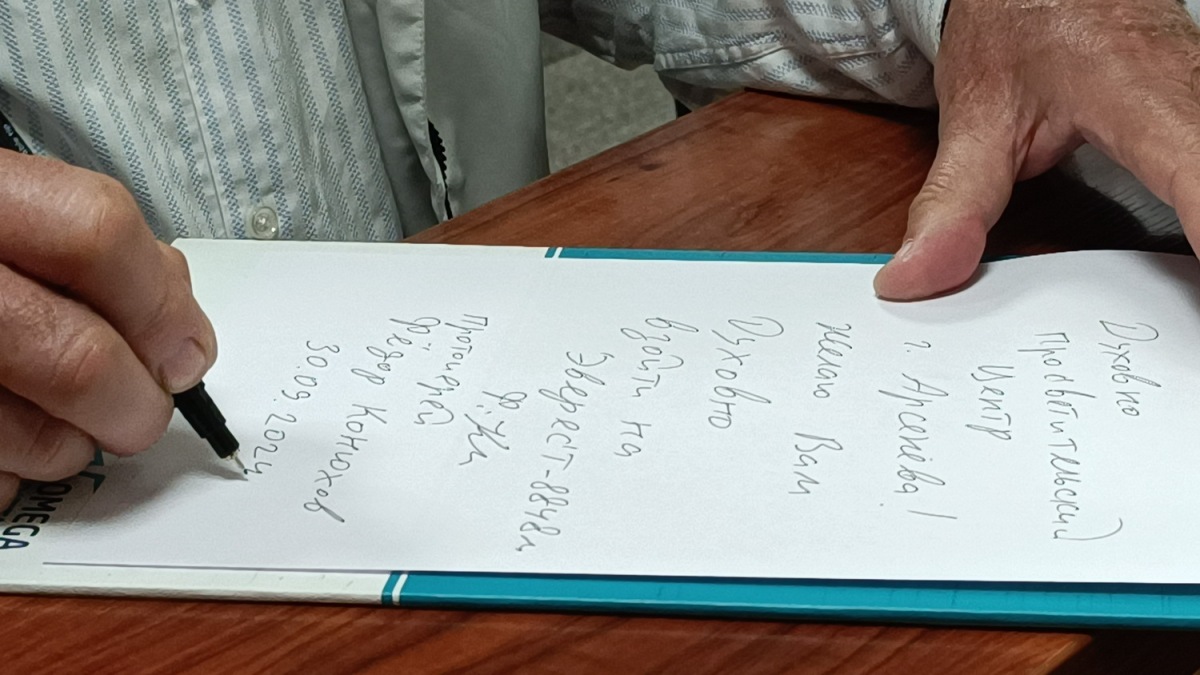 Духовно
просветительский
Центр
г. Арсенева!
Желаю Вам
Духовно
взойти на
Эверест-8848м
Протоиерей
Фёдор Конюхов
30.09.2024
OMEGA